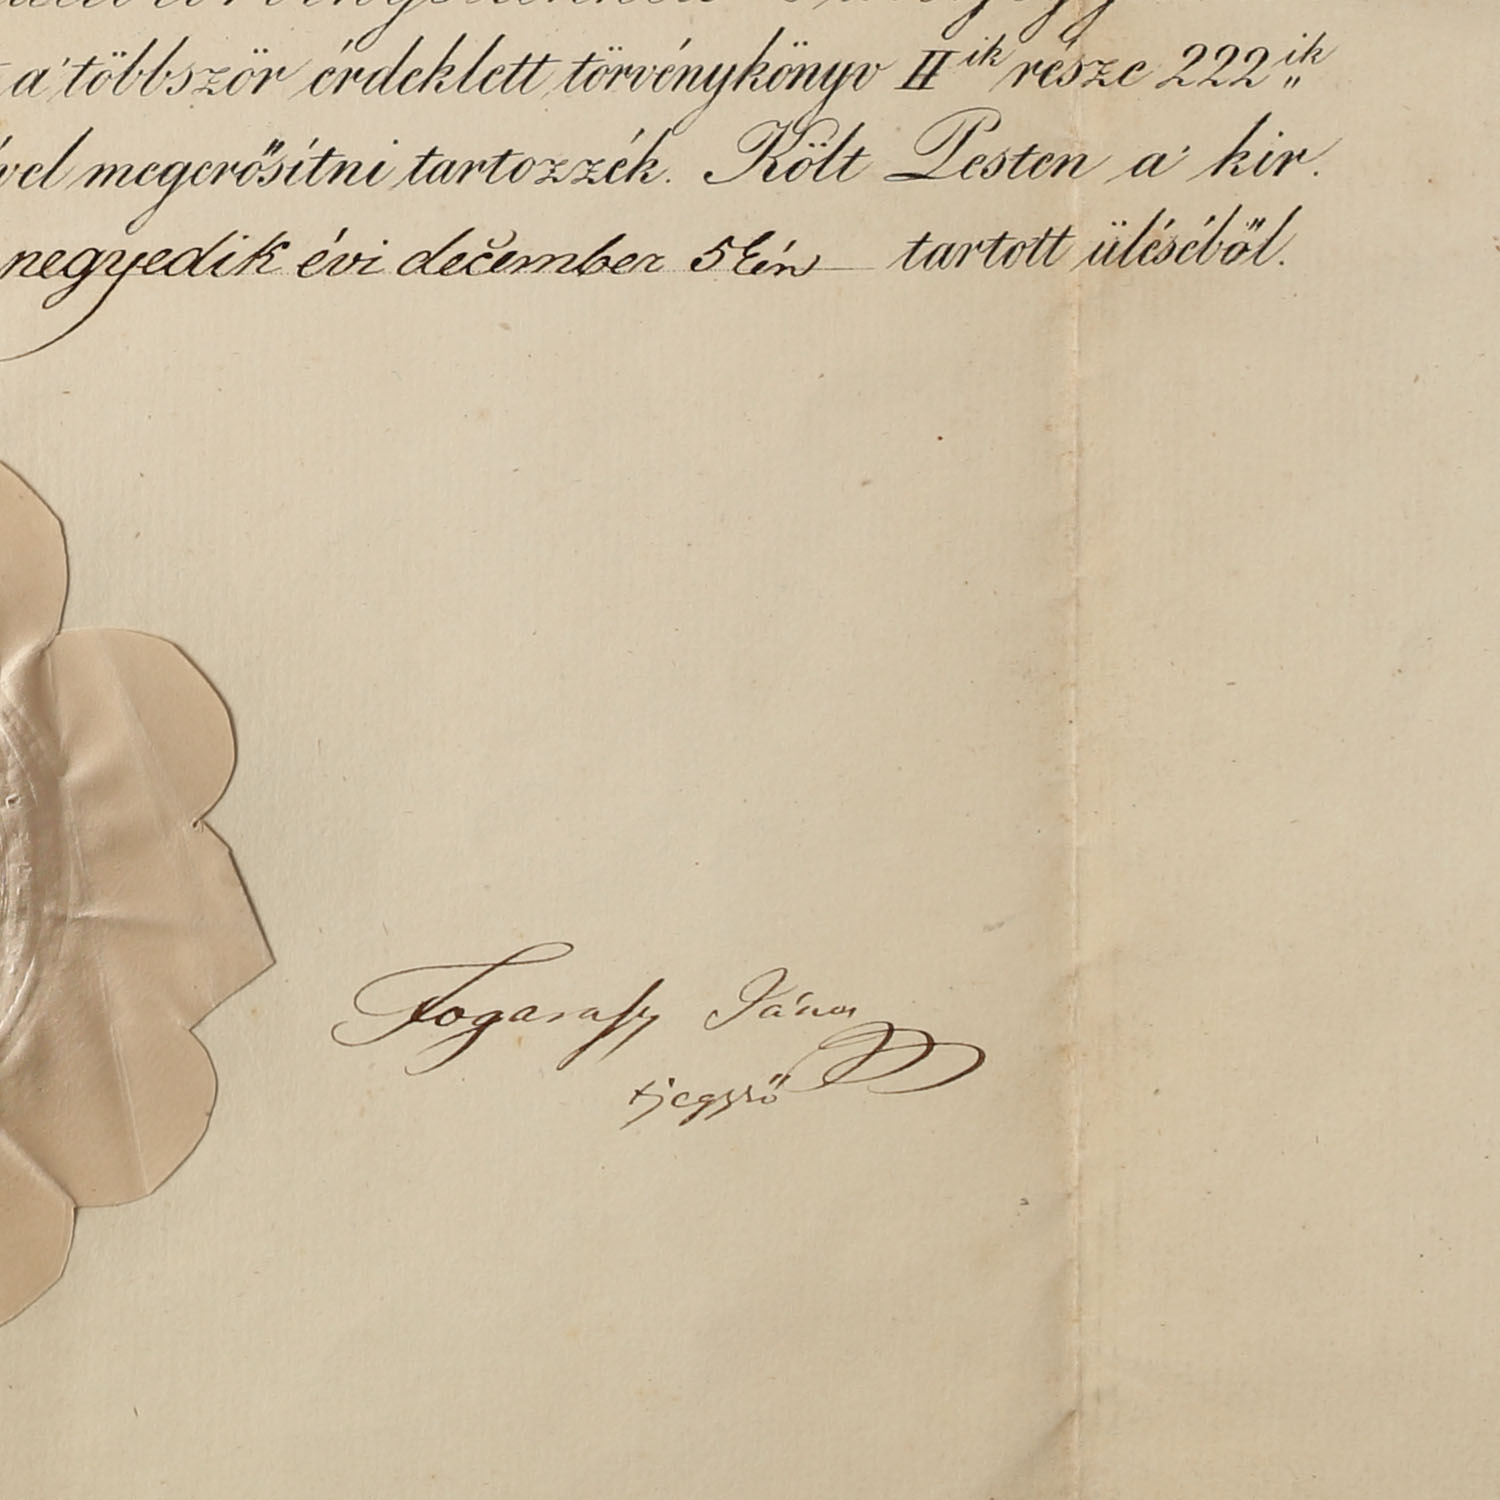 a' többször érdeklett törvénykönyv IIik része 222ik
vel megerősítni tartozzék. Költ Pesten a' kir.
negyedik évi december 5kén tartott üléséből.
Fogarasy János
tjegyző